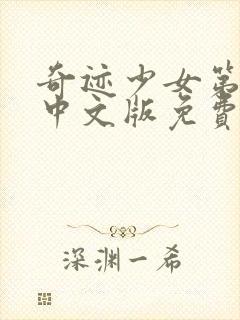 奇迹少女第
中文版免费
深渊一希